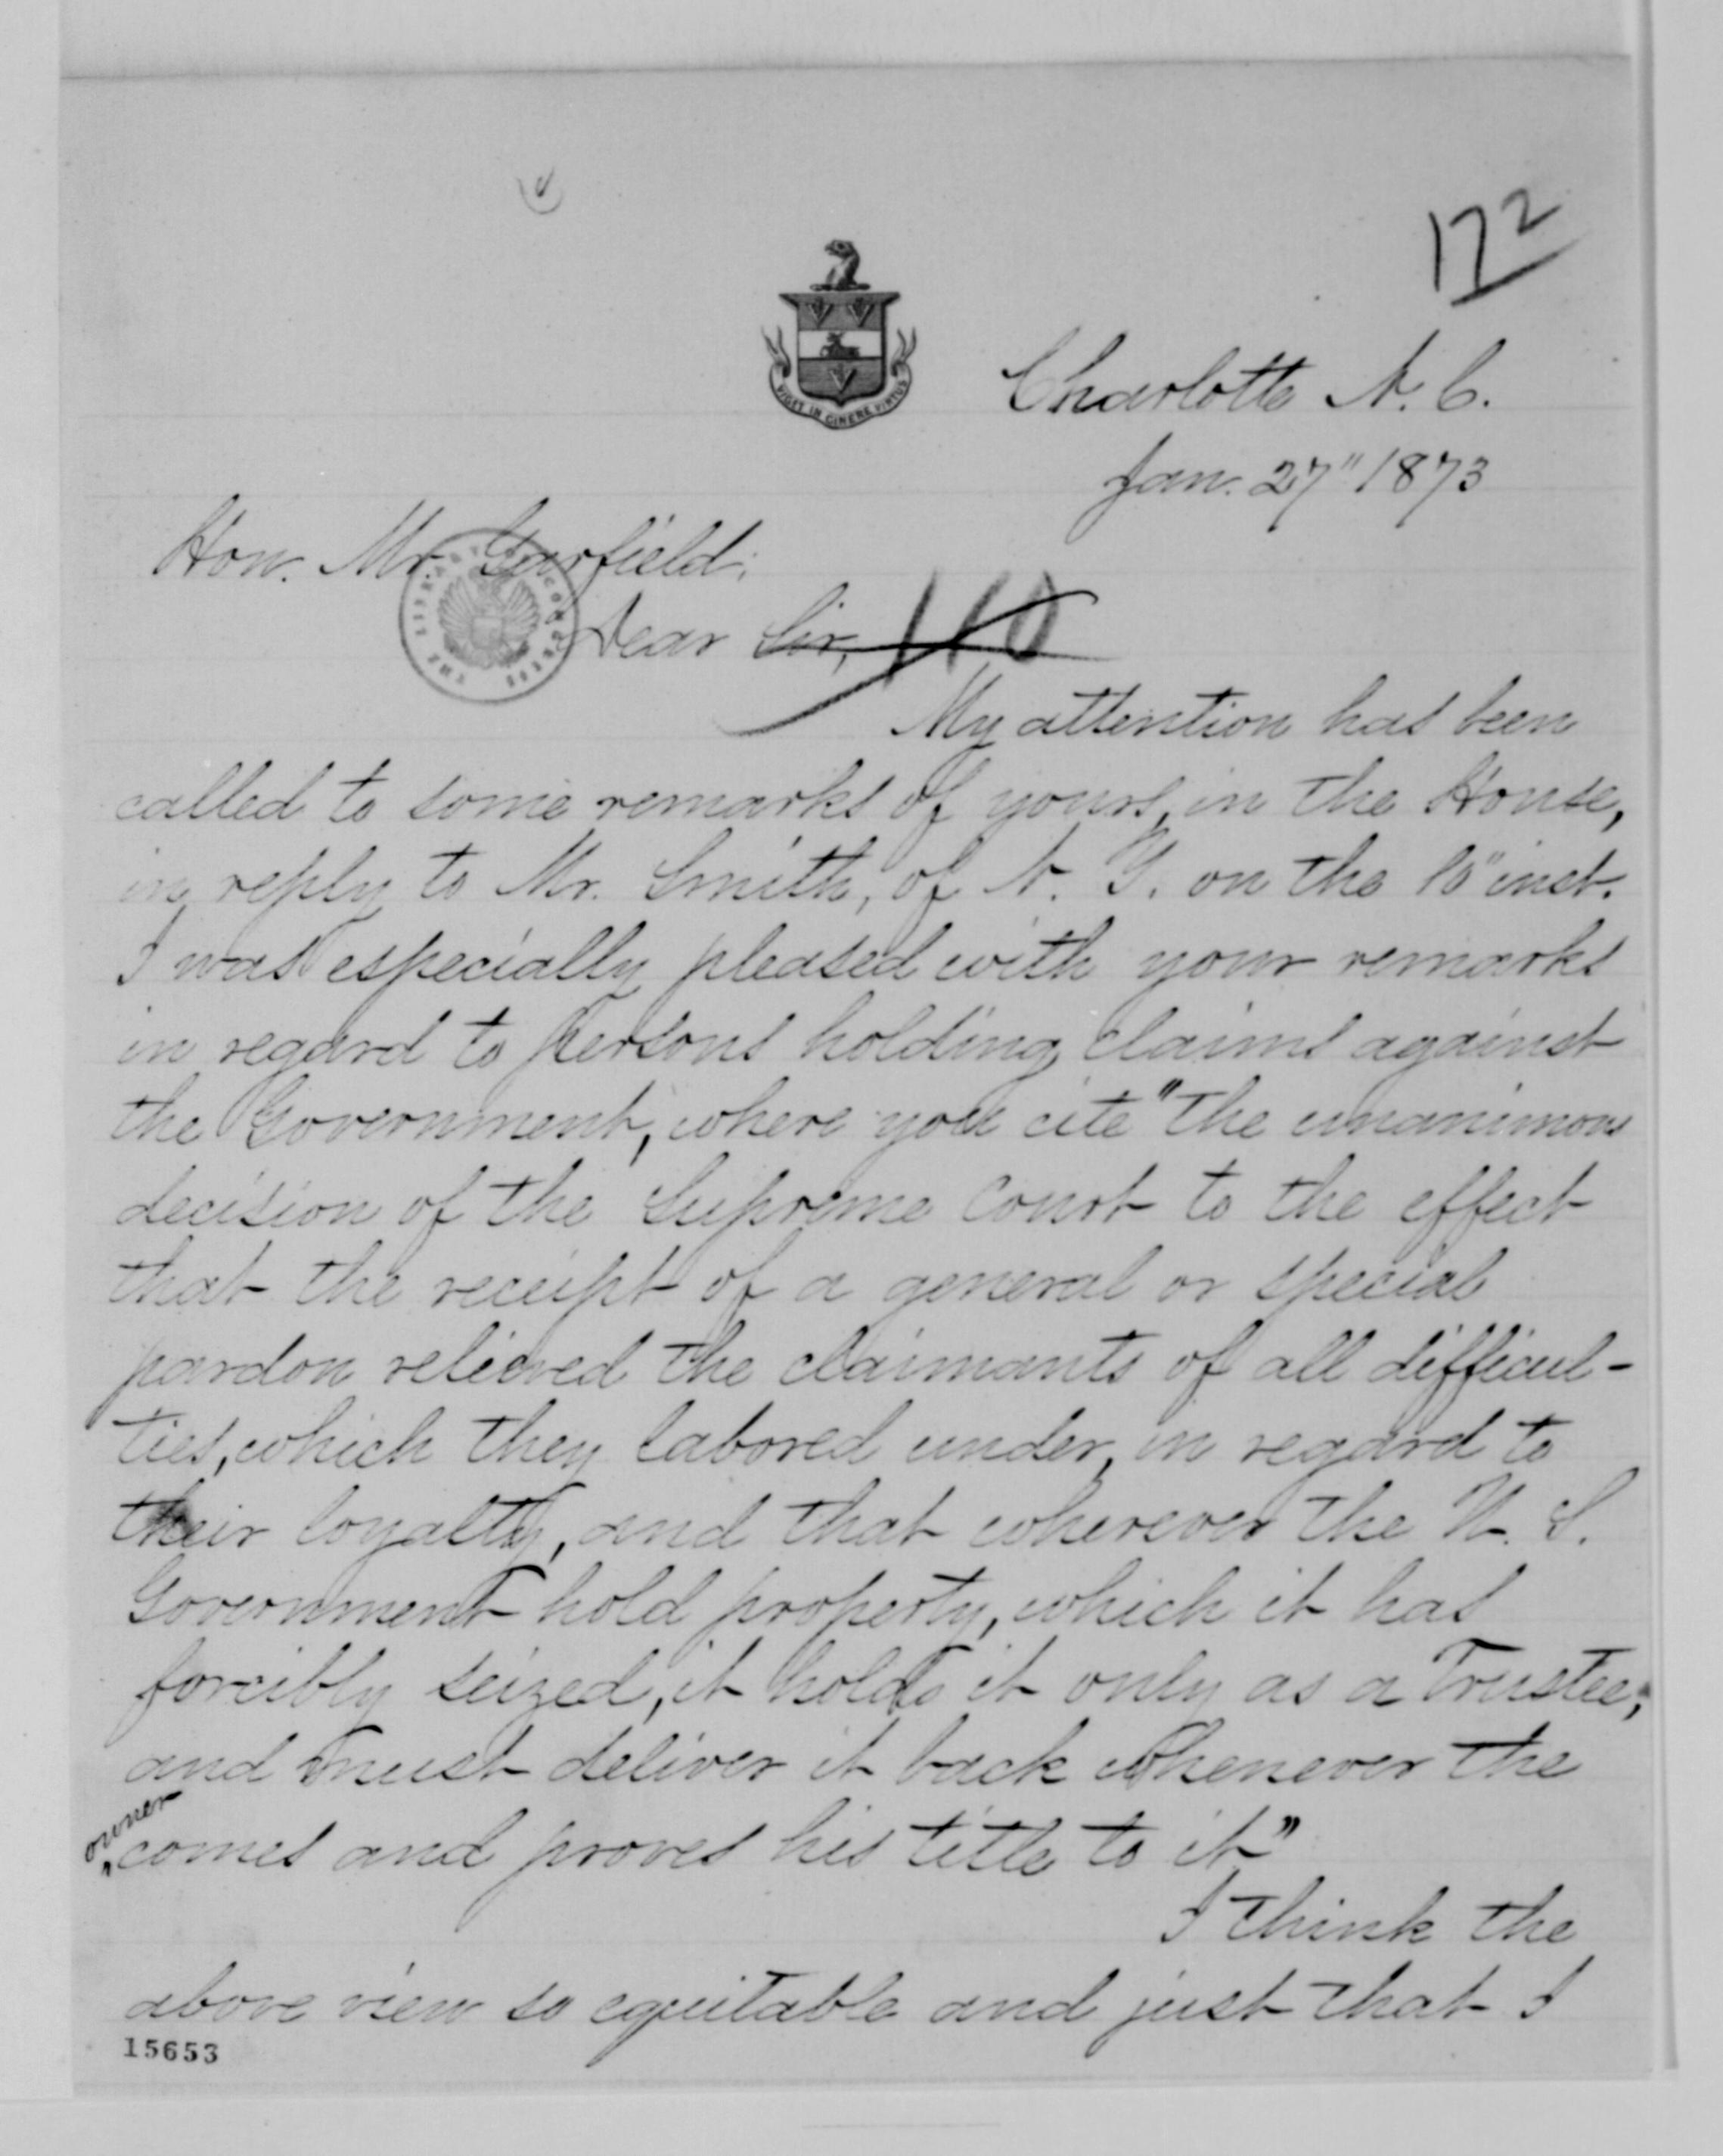 172
VIGET IN CINERE VIRTUS
Charlotte N. C.
Jan. 27" 1873
Hon. Mr. Garfield;
THE LIBRARY OF CONGRESS
Dear Sir,
110
My attention has been
called to some remarks of yours, in the House,
in reply to Mr. Smith, of N. Y. on the 10" inst.
I was especially pleased with your remarks
in regard to persons holding claims against
the Government, where you cite "the unanimous
decision of the Supreme Court to the effect
that the receipt of a general or special
pardon relieved the claimants of all difficul-
ties, which they labored under, in regard to
their loyalty, and that wherever the U. S.
Government hold property, which it has
forcibly seized, it holds it only as a Trustee,
and must deliver it back whenever the
owner comes and proves his title to it"
I think the
above view so equitable and just that I
15653